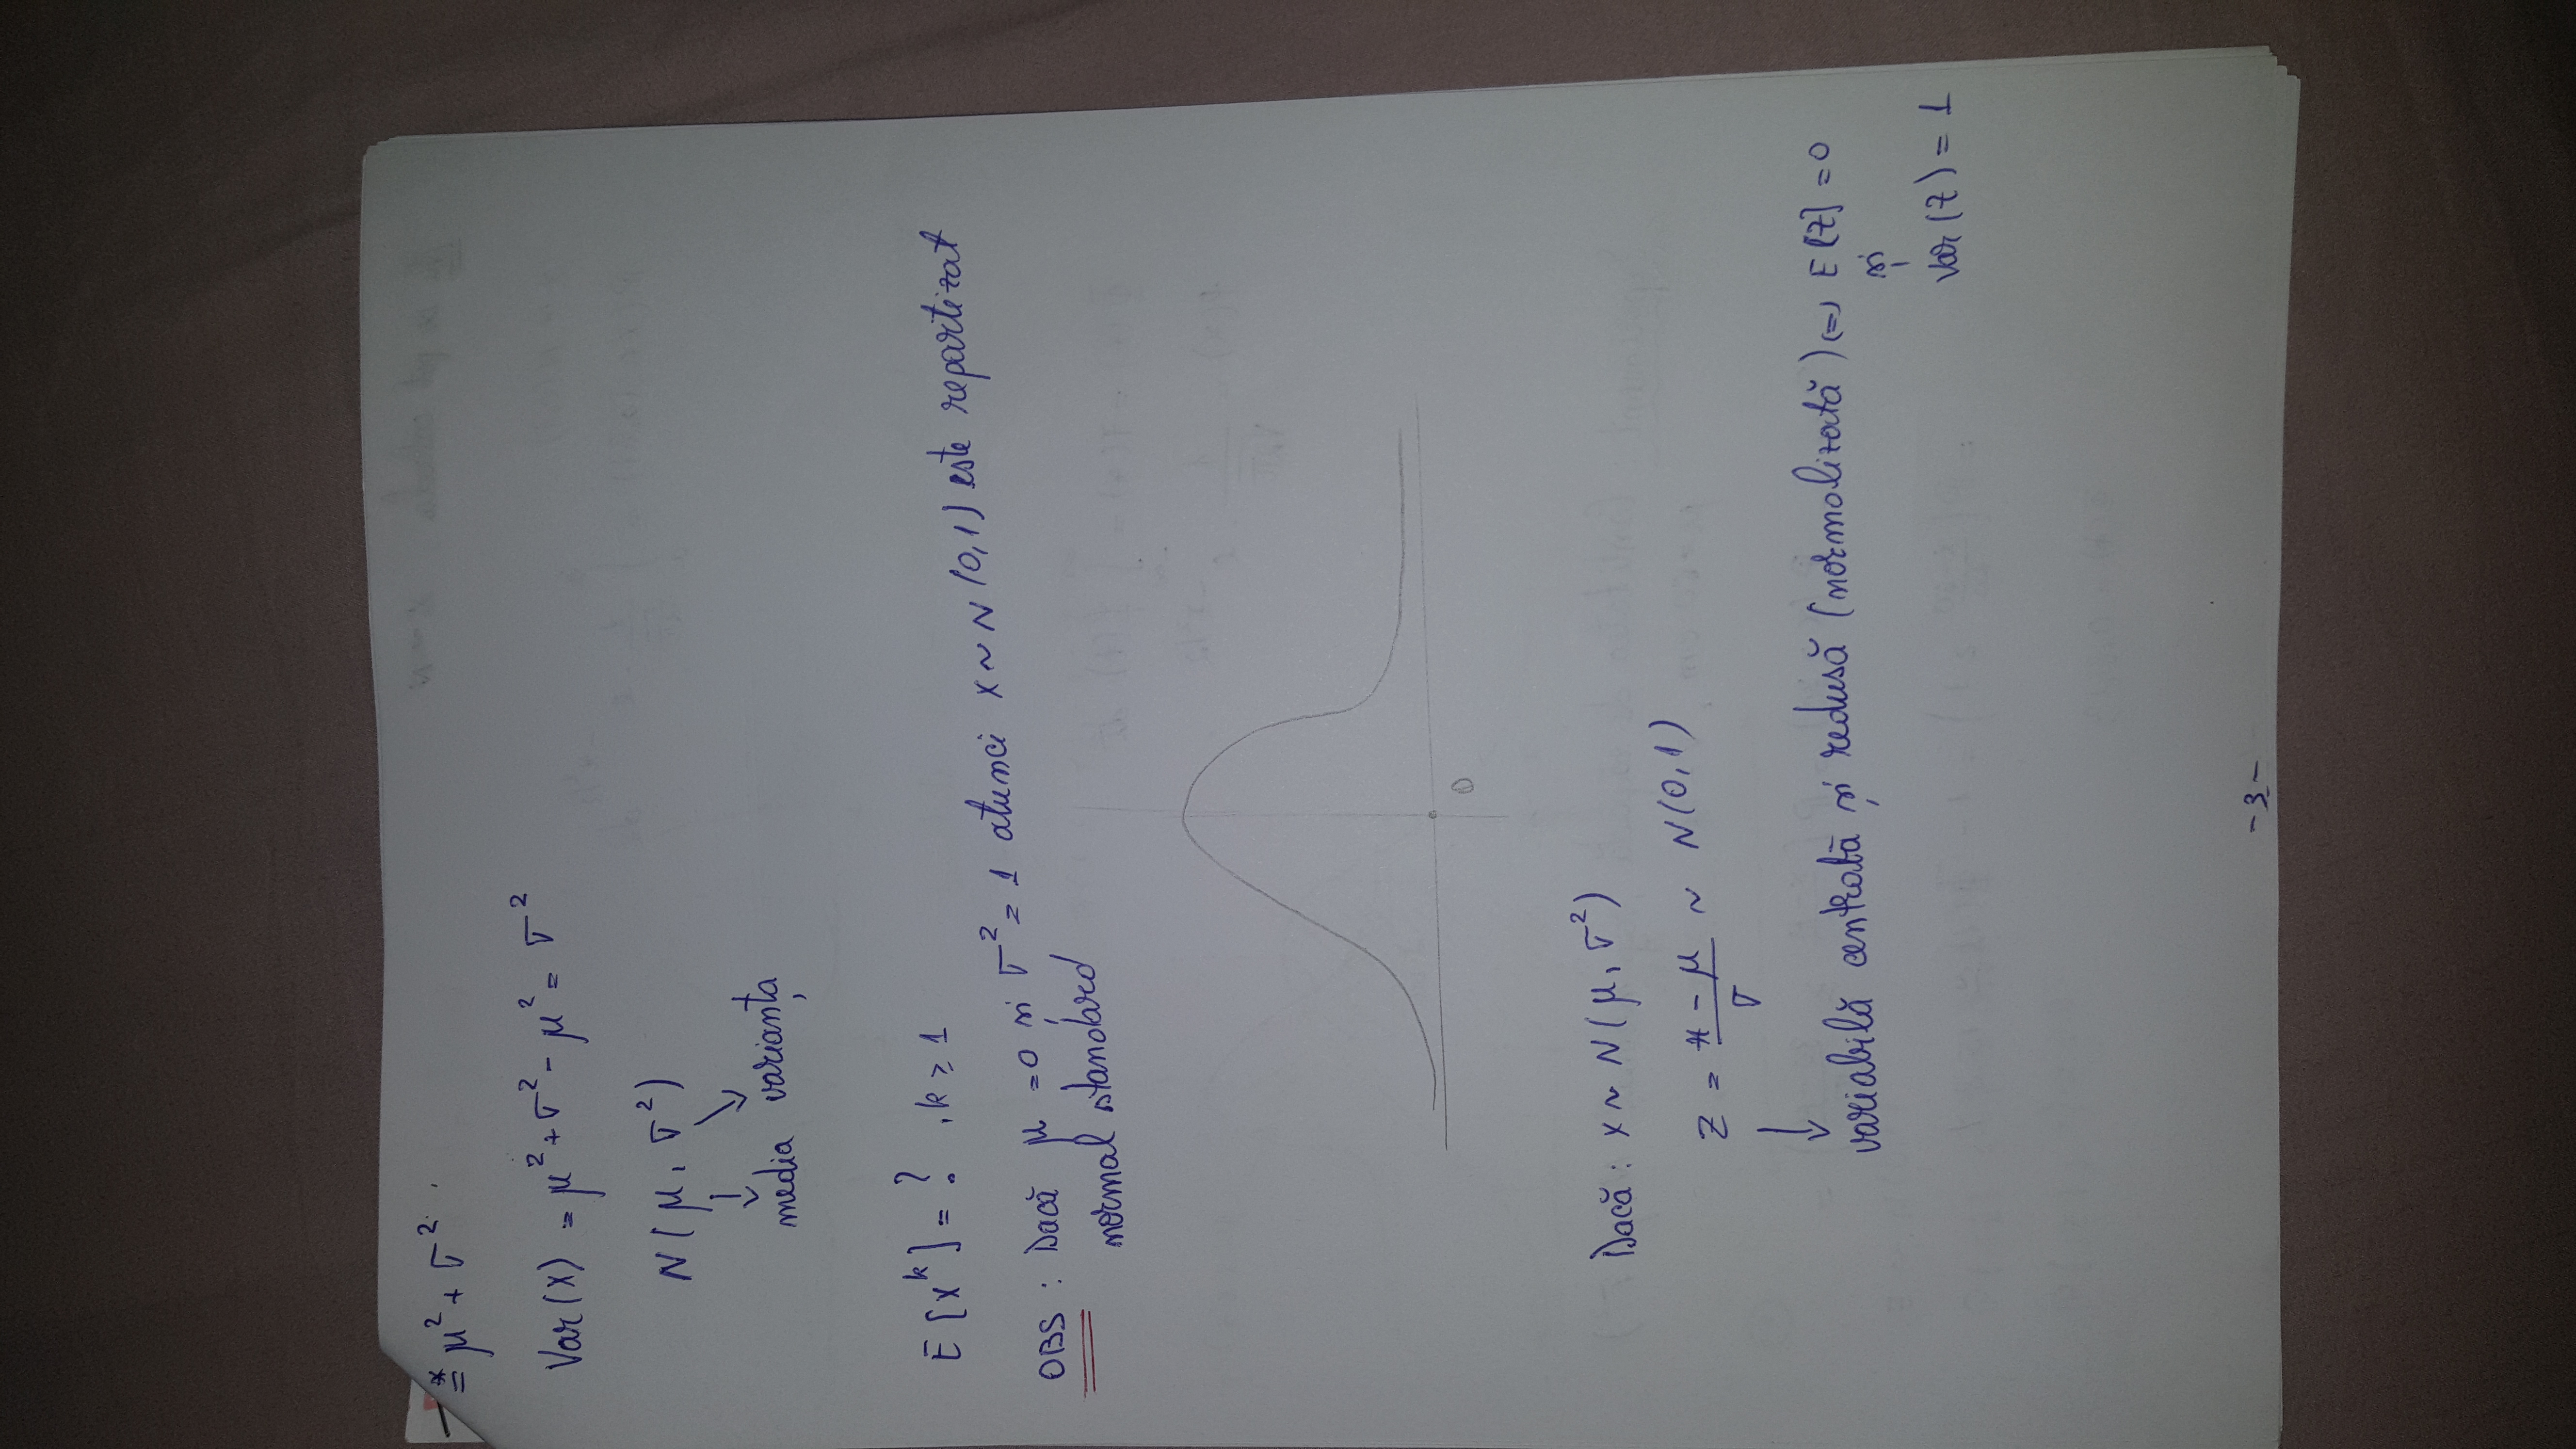 *= μ² + σ².
Var(X) = μ² + σ² - μ² = σ²
N(μ, σ²)
media varianța
E[X^k] = ? , k ≥ 1
OBS : Dacă μ = 0 și σ² = 1 atunci X ~ N(0,1) este repartizat
normal standard
0
Dacă : X ~ N(μ, σ²)
Z = (X - μ)/σ ~ N(0,1)
variabilă centrată și redusă (normalizată) (=) E[Z] = 0
și
Var(Z) = 1
-3-